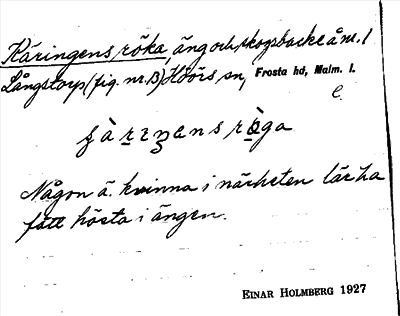 Käringens röka, äng och skogsbacke å nr. 1
Långstorp (fig. nr. B) Höörs sn, Frosta hd, Malm. l.
e.
Någon ä. kvinna i närheten lär ha
fått hösta i ängen.
EINAR HOLMBERG 1927